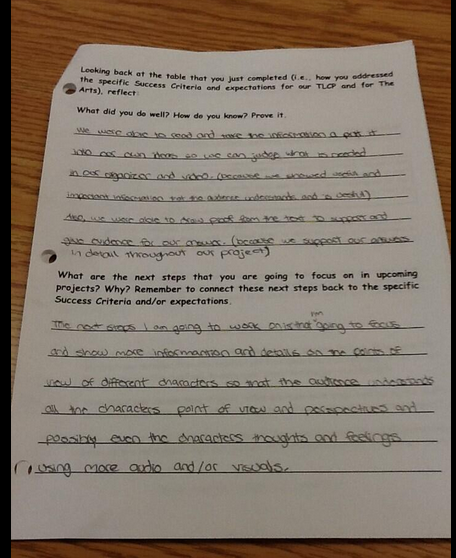 Looking back at the table that you just completed (i.e., how you addressed
the specific Success Criteria and expectations for our TLCP and for The
Arts), reflect:
What did you do well? How do you know? Prove it.
We were able to read and take the information a put it
into our own ideas so we can judge what is needed
in our organizer and video. (because we showed useful and
important information that the audience understands and is useful)
Also, we were able to draw proof from the text to support and
give evidence for our answer. (because we support our answers
in detail throughout our project)
What are the next steps that you are going to focus on in upcoming
projects? Why? Remember to connect these next steps back to the specific
Success Criteria and/or expectations.
The next steps I am going to work on is that I'm going to focus
and show more information and details on the points of
view of different characters so that the audience understands
all the characters point of view and perspectives and
possibly even the characters thoughts and feelings
using more audio and/or visuals.